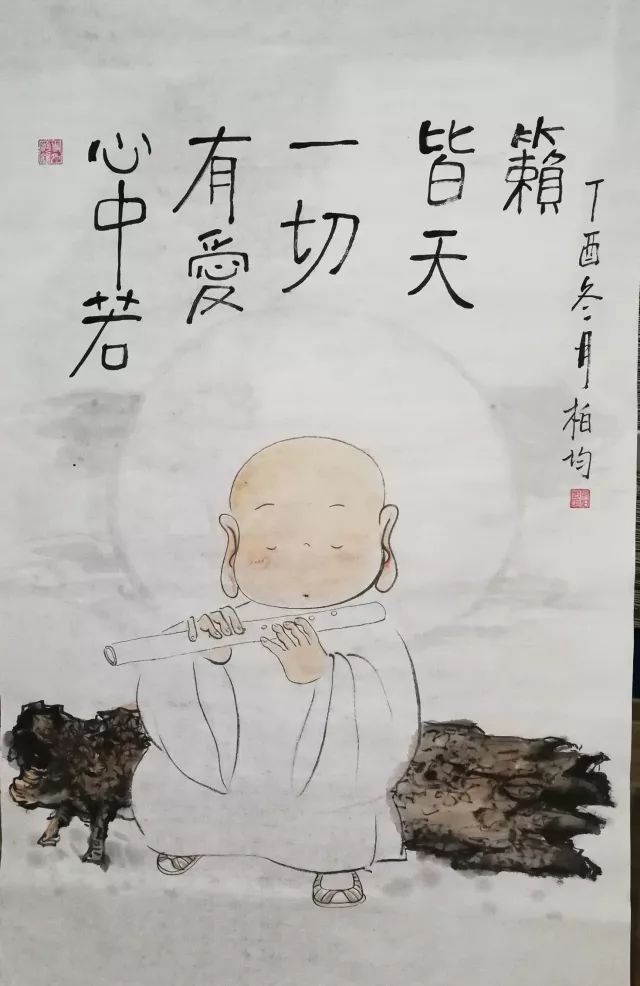 心中若
有愛
一切
皆天
籟
丁酉冬月柏均